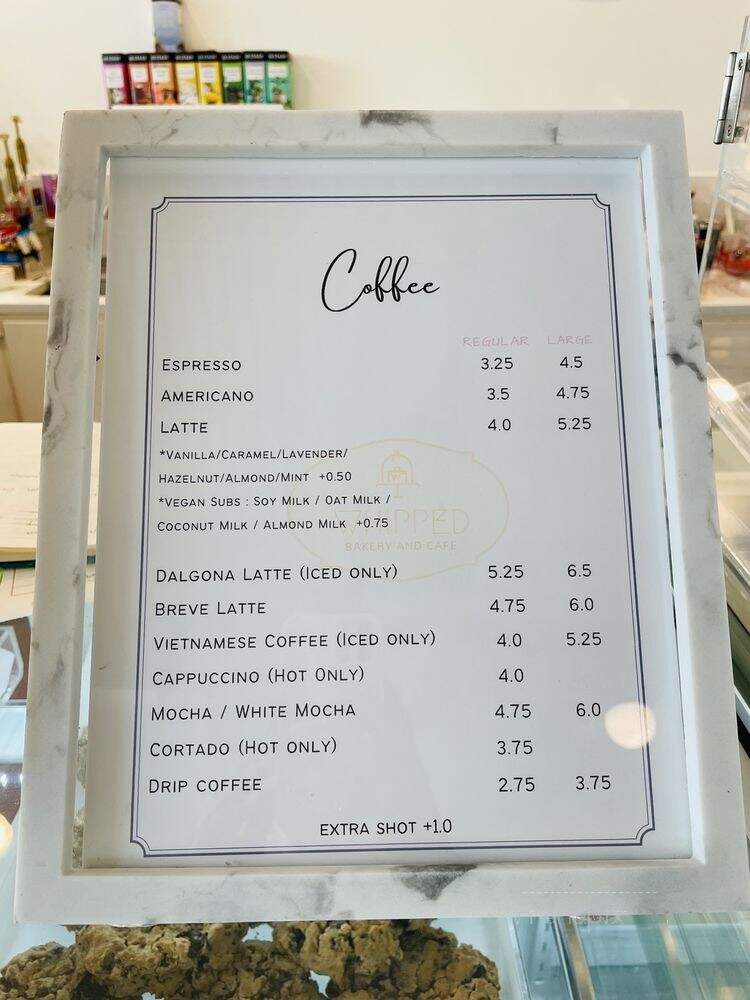 Coffee
REGULAR LARGE
ESPRESSO 3.25 4.5
AMERICANO 3.5 4.75
LATTE 4.0 5.25
*VANILLA/CARAMEL/LAVENDER/
HAZELNUT/ALMOND/MINT +0.50
*VEGAN SUBS : SOY MILK / OAT MILK /
COCONUT MILK / ALMOND MILK +0.75
WHIPPED
BAKERY AND CAFE
DALGONA LATTE (ICED ONLY) 5.25 6.5
BREVE LATTE 4.75 6.0
VIETNAMESE COFFEE (ICED ONLY) 4.0 5.25
CAPPUCCINO (HOT ONLY) 4.0
MOCHA / WHITE MOCHA 4.75 6.0
CORTADO (HOT ONLY) 3.75
DRIP COFFEE 2.75 3.75
EXTRA SHOT +1.0